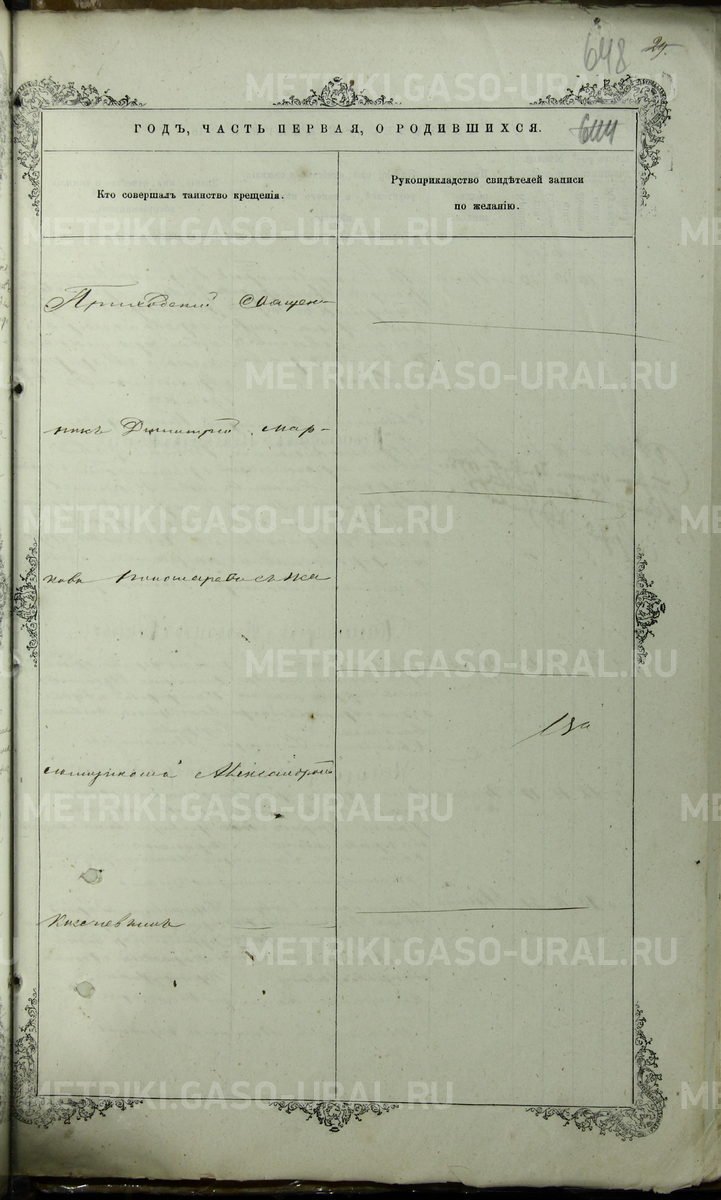 648 29.
ГОДЪ, ЧАСТЬ ПЕРВАЯ, О РОДИВШИХСЯ.
644
Кто совершалъ таинство крещенія.
Рукоприкладство свидѣтелей записи
по желанію.
Приходскій Священ-
никъ Димитрій Мар-
ковъ
Александромъ
METRIKI.GASO-URAL.RU
METRIKI.GASO-URAL.RU
METRIKI.GASO-URAL.RU
METRIKI.GASO-URAL.RU
METRIKI.GASO-URAL.RU
METRIKI.GASO-URAL.RU
METRIKI.GASO-URAL.RU
METRIKI.GASO-URAL.RU